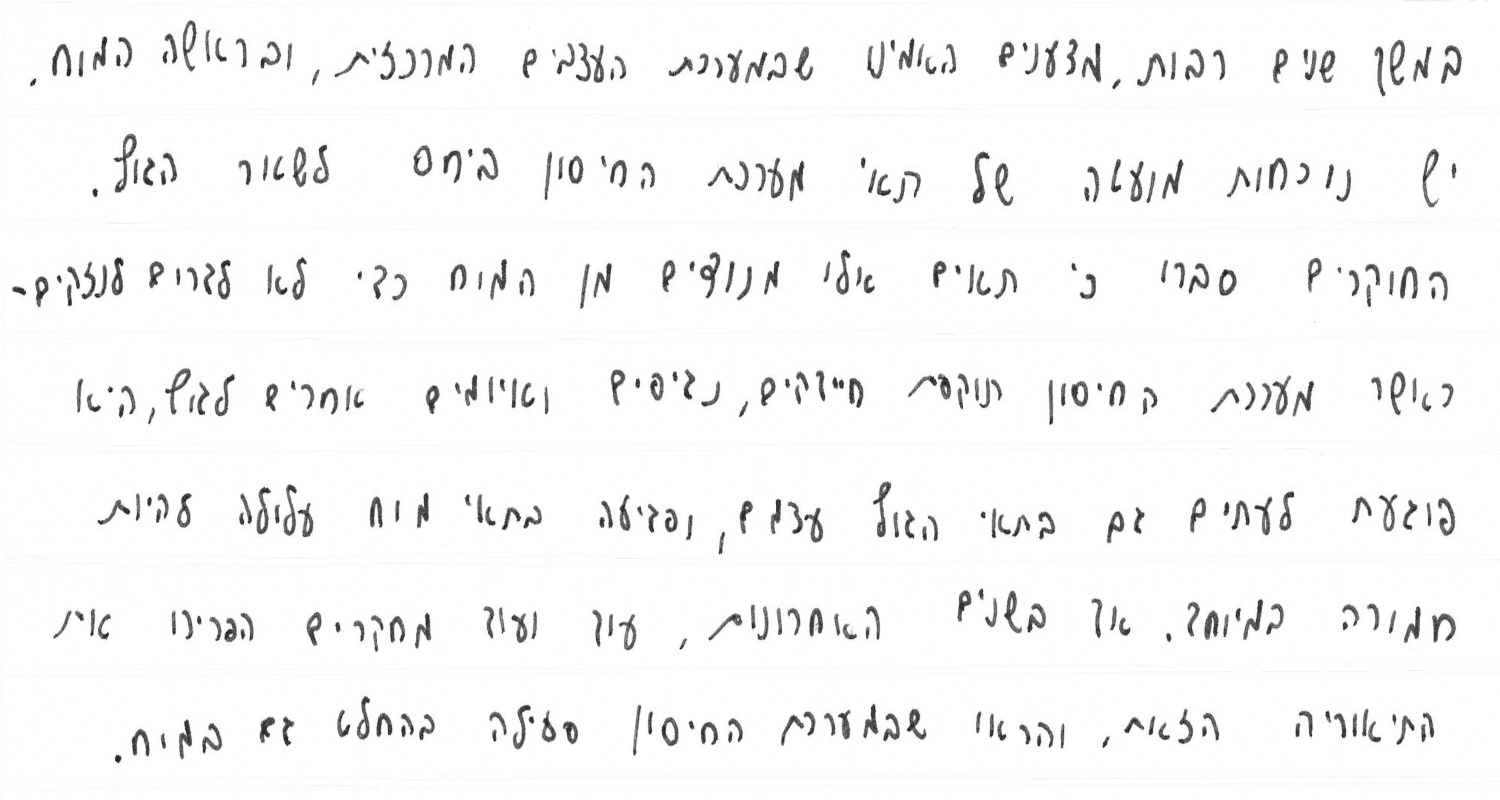 במשך שנים רבות, מדענים האמינו שבמערכת העצבים המרכזית, ובראשה המוח.
יש נוכחות מועטה של תאי מערכת החיסון ביחס לשאור הגוף.
החוקרים סברו כי תאים אילו מנודים מן המוח כדי לא לגרום לנזקים-
כאשר מערכת החיסון תוקפת חיידקים, נגיפים ואיומים אחרים לגוף, היא
פוגעת לעתים גם בתאי הגוף עצמם, ופגיעה בתאי מוח עלולה להיות
חמורה במיוחד. אך בשנים האחרונות, עוד ועוד מחקרים הפריכו את
התיאוריה הזאת, והראו שבמערכת החיסון פעילה בהחלט גם במוח.